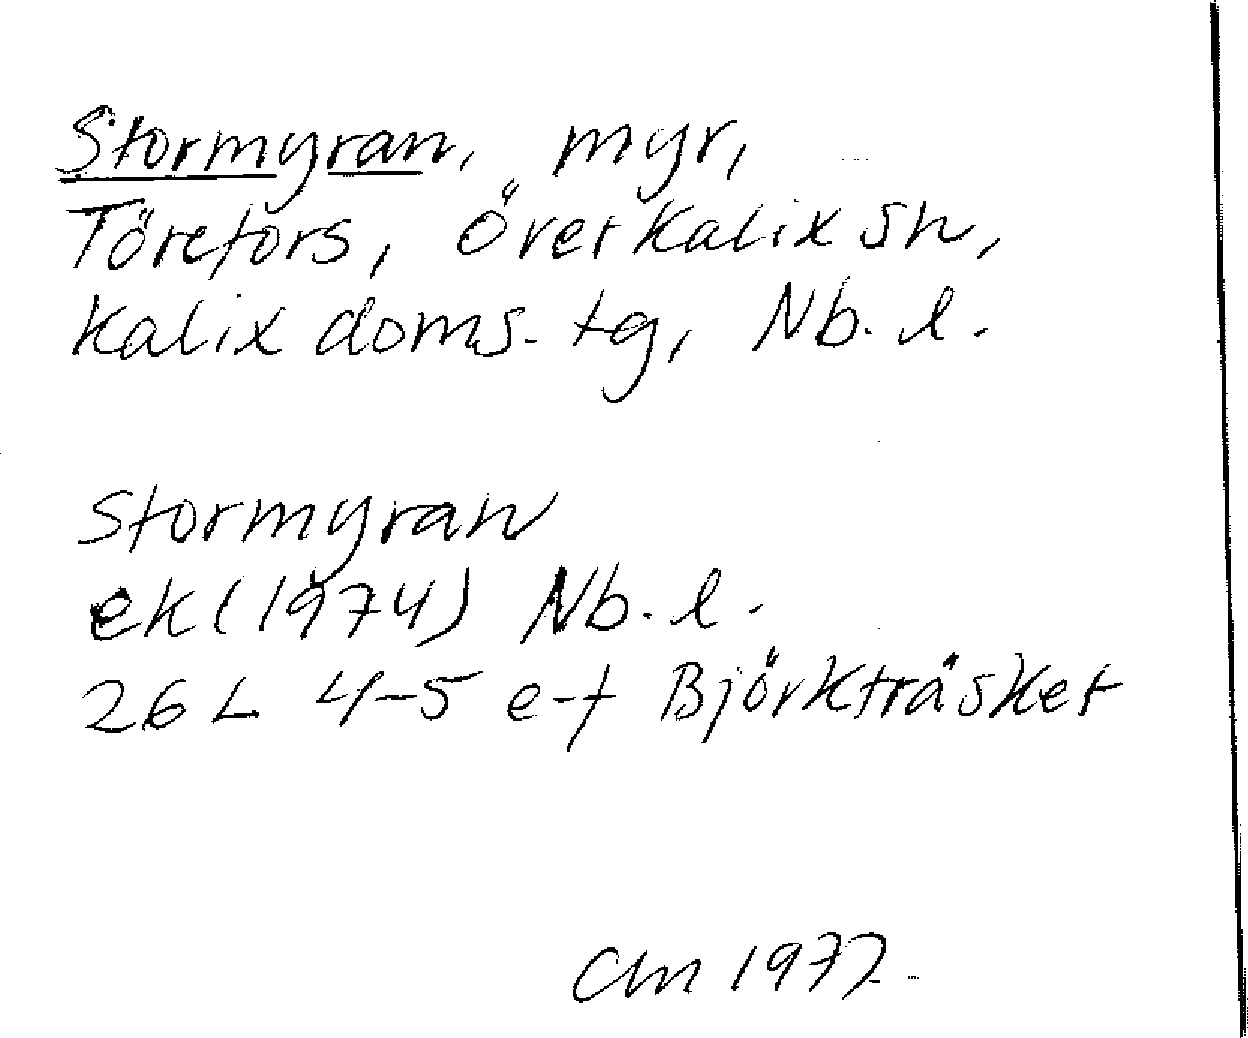 Stormyran, myr,
Törefors, Överkalix sn,
Kalix doms. tg, Nb. l.
Stormyran
ek (1974) Nb. l.
26 L 4-5 e-f Björkträsket
1977